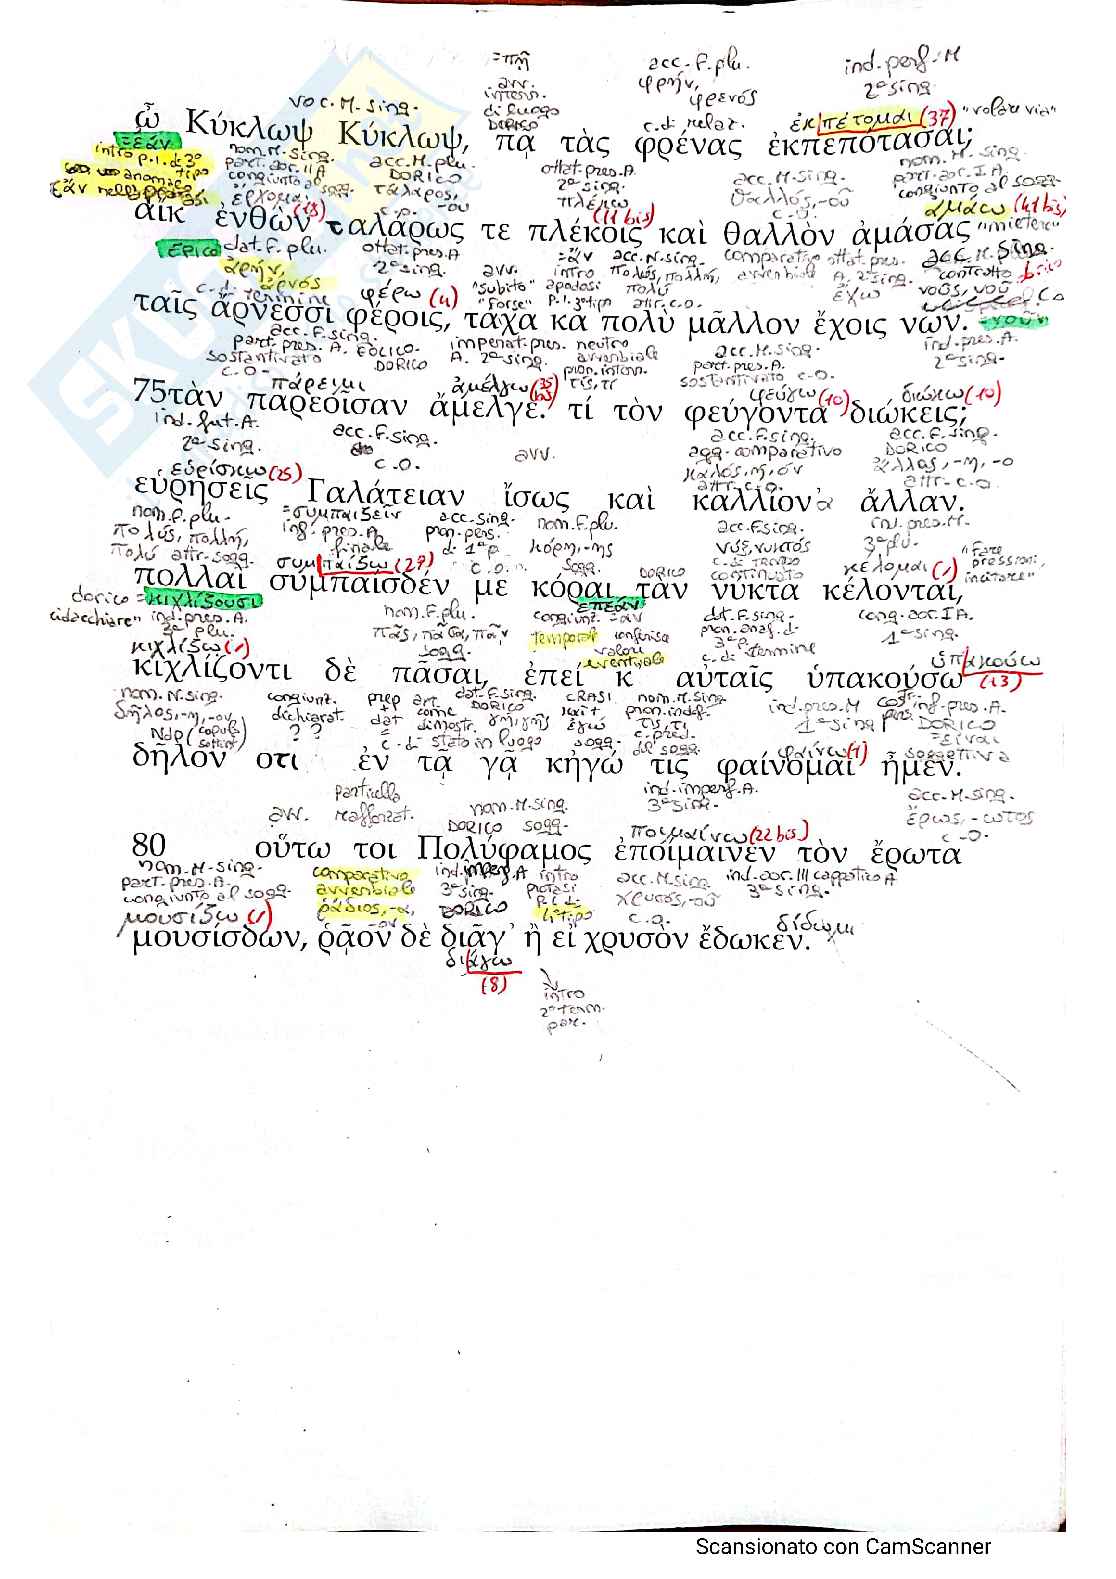 =πῇ acc. F. plu. ind. perf. M
avv. φρήν, 2ª sing
voc. M. sing. di luogo φρενός
DORICO c. di relaz. ἐκπέτομαι (37) "volare via"
ὦ Κύκλωψ Κύκλωψ, πᾷ τὰς φρένας ἐκπεπότασαι;
=ἐάν
intro p.i. di 3º tipo nom. M. sing. acc. M. plu. ottat. pres. A. acc. M. sing. nom. M. sing.
part. aor. II A DORICO 2ª sing. θαλλός, -οῦ part. aor. I A.
congiunto al sogg. τάλαρος, -ου πλέκω c.o. congiunto al sogg
ἔρχομαι (13) c.o. (11 bis) ἀμάω (41 bis)
αἴκ ἐνθὼν ταλάρως τε πλέκοις καὶ θαλλὸν ἀμάσας "mietere"
ERICO dat. F. plu. ottat. pres. A =ἄν acc. N. sing. comparativo ottat. pres. acc. M. sing.
ἀρήν, 2ª sing. avv. intro πολύς, πολλή, avverbiale A. 2ª sing. contratto
ἀρνός "subito" apodosi πολύ ἔχω νοῦς, νοῦ
c. di termine φέρω (4) "forse" P.I. 3º tipo attr. c.o.
ταῖς ἄρνεσσι φέροις, τάχα κα πολὺ μᾶλλον ἔχοις νῶν. =νοῦν
acc. F. sing.
part. pres. A. EOLICO. imperat. pres. neutro acc. M. sing. ind. pres. A.
sostantivato DORICO A. 2ª sing. avverbiale part. pres. A. 2ª sing.
c.o. pron. interr. sostantivato c.o.
πάρειμι ἀμέλγω (35 bis) τίς, τί φεύγω (10) διώκω (10)
75τὰν παρεοῖσαν ἄμελγε. τί τὸν φεύγοντα διώκεις;
ind. fut. A. acc. F. sing. acc. F. sing. acc. F. sing.
2ª sing. avv. agg. comparativo DORICO
εὑρίσκω (25) c.o. καλός, ή, όν ἄλλος, -η, -ο
attr. c.o. attr. c.o
εὑρησεῖς Γαλάτειαν ἴσως καὶ καλλίον᾽ ἄλλαν.
nom. F. plu. =συμπαίζειν acc. sing. nom. F. plu. acc. F. sing. ind. pres. M.
πολύς, πολλή, inf. pres. A pron. pers. κόρη, -ης νύξ, νυκτός 3ª plu.
πολύ attr. sogg. finale di 1ª p. sogg. c. di tempo κέλομαι (1) "fare pressioni,
συμπαίζω (27) c.o. DORICO continuato incitare"
πολλαὶ συμπαίσδέν με κόραι τὰν νύκτα κέλονται,
dorico =κιχλίζουσι nom. F. plu. ἐπεάν dat. F. sing. cong. aor. I A.
"ridacchiare" ind. pres. A. πᾶς, πᾶσα, πᾶν congiunz. =ἄν pron. anaf. di 1ª sing.
3ª plu. sogg. temporale conferisce 3ª p.
κιχλίζω (1) valore eventuale c. di termine ὑπακούω
κιχλίζοντι δὲ πᾶσαι, ἐπεί κ αὐταῖς ὑπακούσω (13)
nom. N. sing. congiunz. prep art. dat. F. sing. CRASI nom. M. sing ind. pres. M inf. pres. A.
δῆλος, -η, -ον dichiarat. + come DORICO καί + pron. indef. 1ª sing DORICO
Ndp (copula sottint.) ? ? dat dimostr. γῆ, γῆς ἐγώ τις, τι =εἶναι
c. di stato in luogo sogg. c. pred. del sogg. φαίνω (1) soggettiva
δῆλον ὅτι ἐν τᾷ γᾷ κἠγώ τις φαίνομαι ἦμεν.
particella ind. imperf. A. acc. M. sing.
avv. rafforzat. nom. M. sing. 3ª sing. ἔρως, -ωτος
DORICO sogg. ποιμαίνω (22 bis) c.o.
80 οὕτω τοι Πολύφαμος ἐποίμαινεν τὸν ἔρωτα
nom. M. sing. comparativo ind. imperf. A intro acc. M. sing ind. aor. III cappatico A
part. pres. A. avverbiale 3ª sing. protasi χρυσός, -οῦ 3ª sing.
congiunto al sogg. ῥᾴδιος, -α, -ον DORICO P.I. di 4º tipo c.o.
μουσίζω (1) δίδωμι
μουσίσδων, ῥᾷον δὲ διᾶγ᾽ ἢ εἰ χρυσὸν ἔδωκεν.
διάγω
(8) intro
2º term.
par.
Scansionato con CamScanner